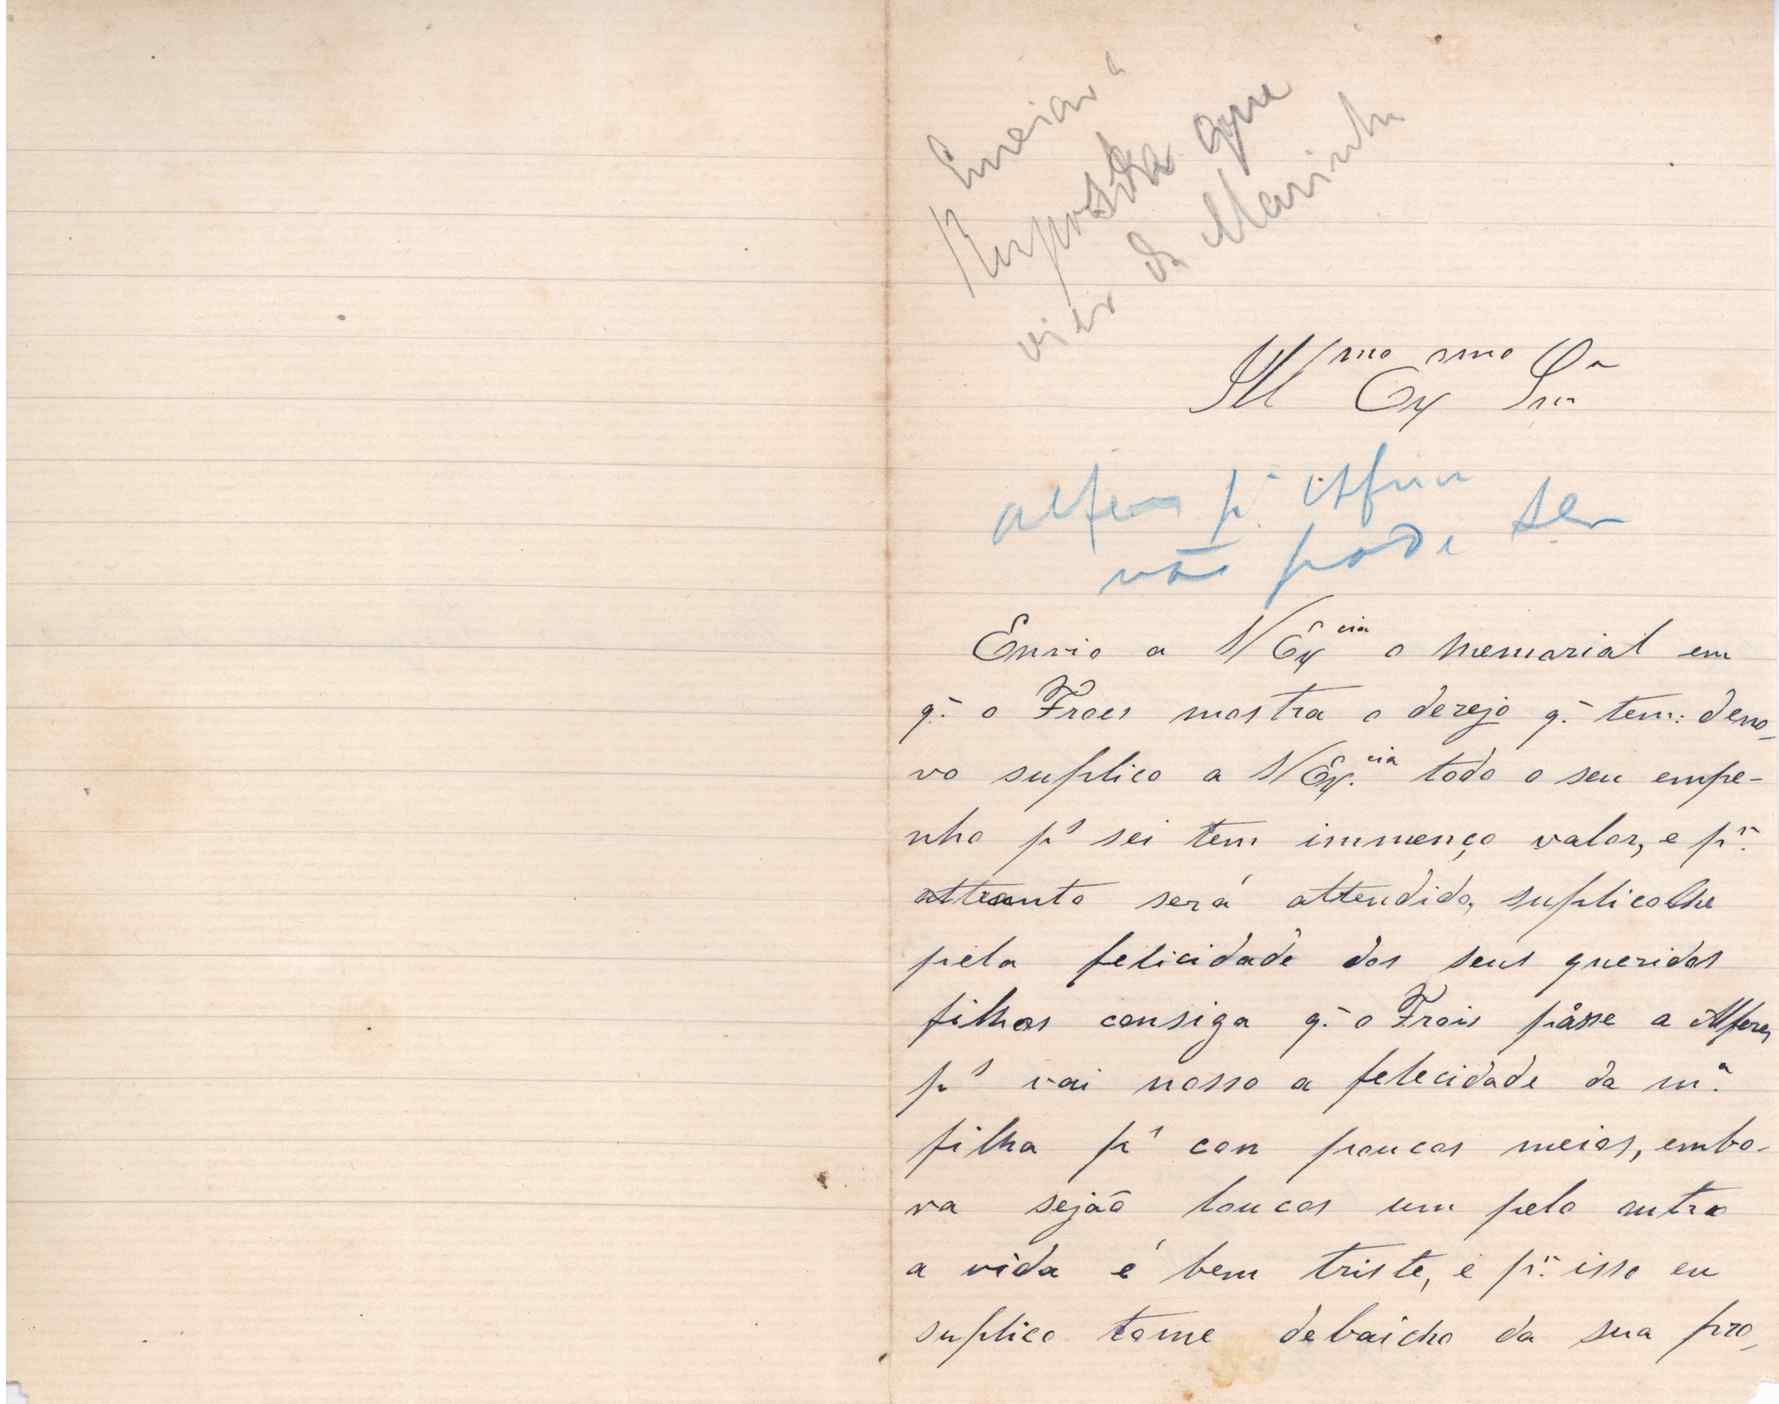 Enviar a
Resposta que
vier da Marinha
Ill.mo Ex.mo Snr
alferes p.a
não pode ser
Envio a V Ex.cia o memorial em
q.̃ o Froes mostra o dezejo q.̃ tem: deno-
vo suplico a V Ex.cia todo o seu empe-
nho p.s sei tem immenço valor, e p.r
será attendido, suplicolhe
pela felicidade dos seus queridos
filhos consiga q.̃ o Frois passe a Alferes
p.s vai nosso a felecidade da m.a
filha p.s con poucos meios, embo-
ra sejão loucos um pelo outro
a vida é bem triste, e p.r isso eu
suplico tome debaicho da sua pro-